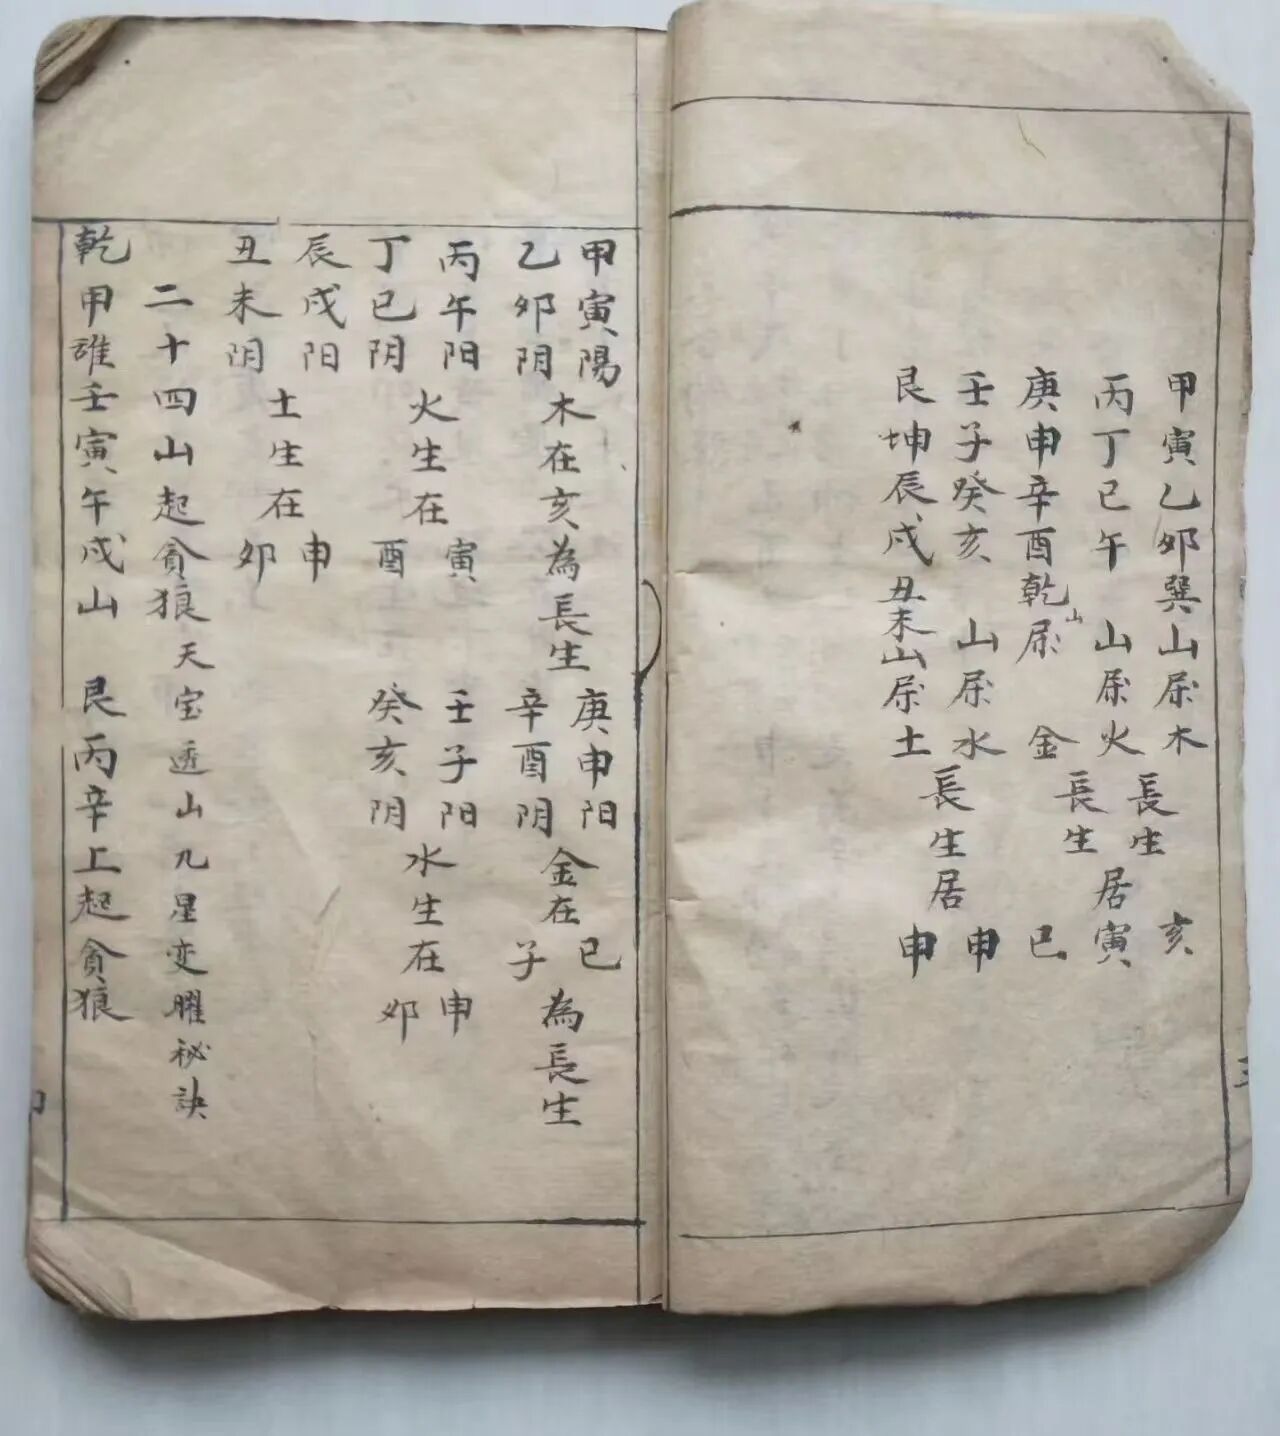 甲寅乙卯巽山屬木
長生
亥
丙丁巳午 山屬火
長生
居寅
庚申辛酉乾山屬 金
巳
壬子癸亥 山屬水
長生居
申
艮坤辰戌丑未山屬土
申
甲寅陽
乙卯阴
木在亥為長生
庚申阳
辛酉阴
金在
巳
子
為長生
丙午阳
丁巳阴
火生在
寅
酉
壬子阳
癸亥阴
水生在
申
卯
辰戌阳
丑未阴
土生在
申
卯
二十四山起貪狼天宝透山九星变曜秘訣
乾甲離壬寅午戌山 艮丙辛上起貪狼